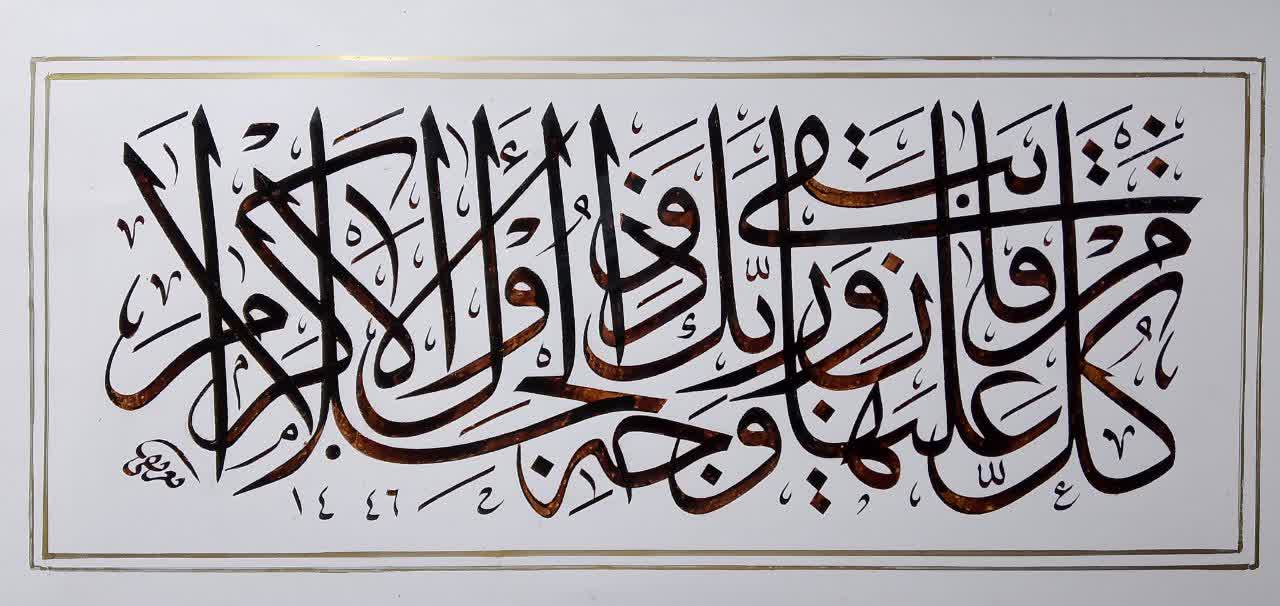 كُلُّ مَنْ عَلَيْهَا فَانٍ وَيَبْقَى وَجْهُ رَبِّكَ ذُو الْجَلَالِ وَالْإِكْرَامِ
١٤٤٦